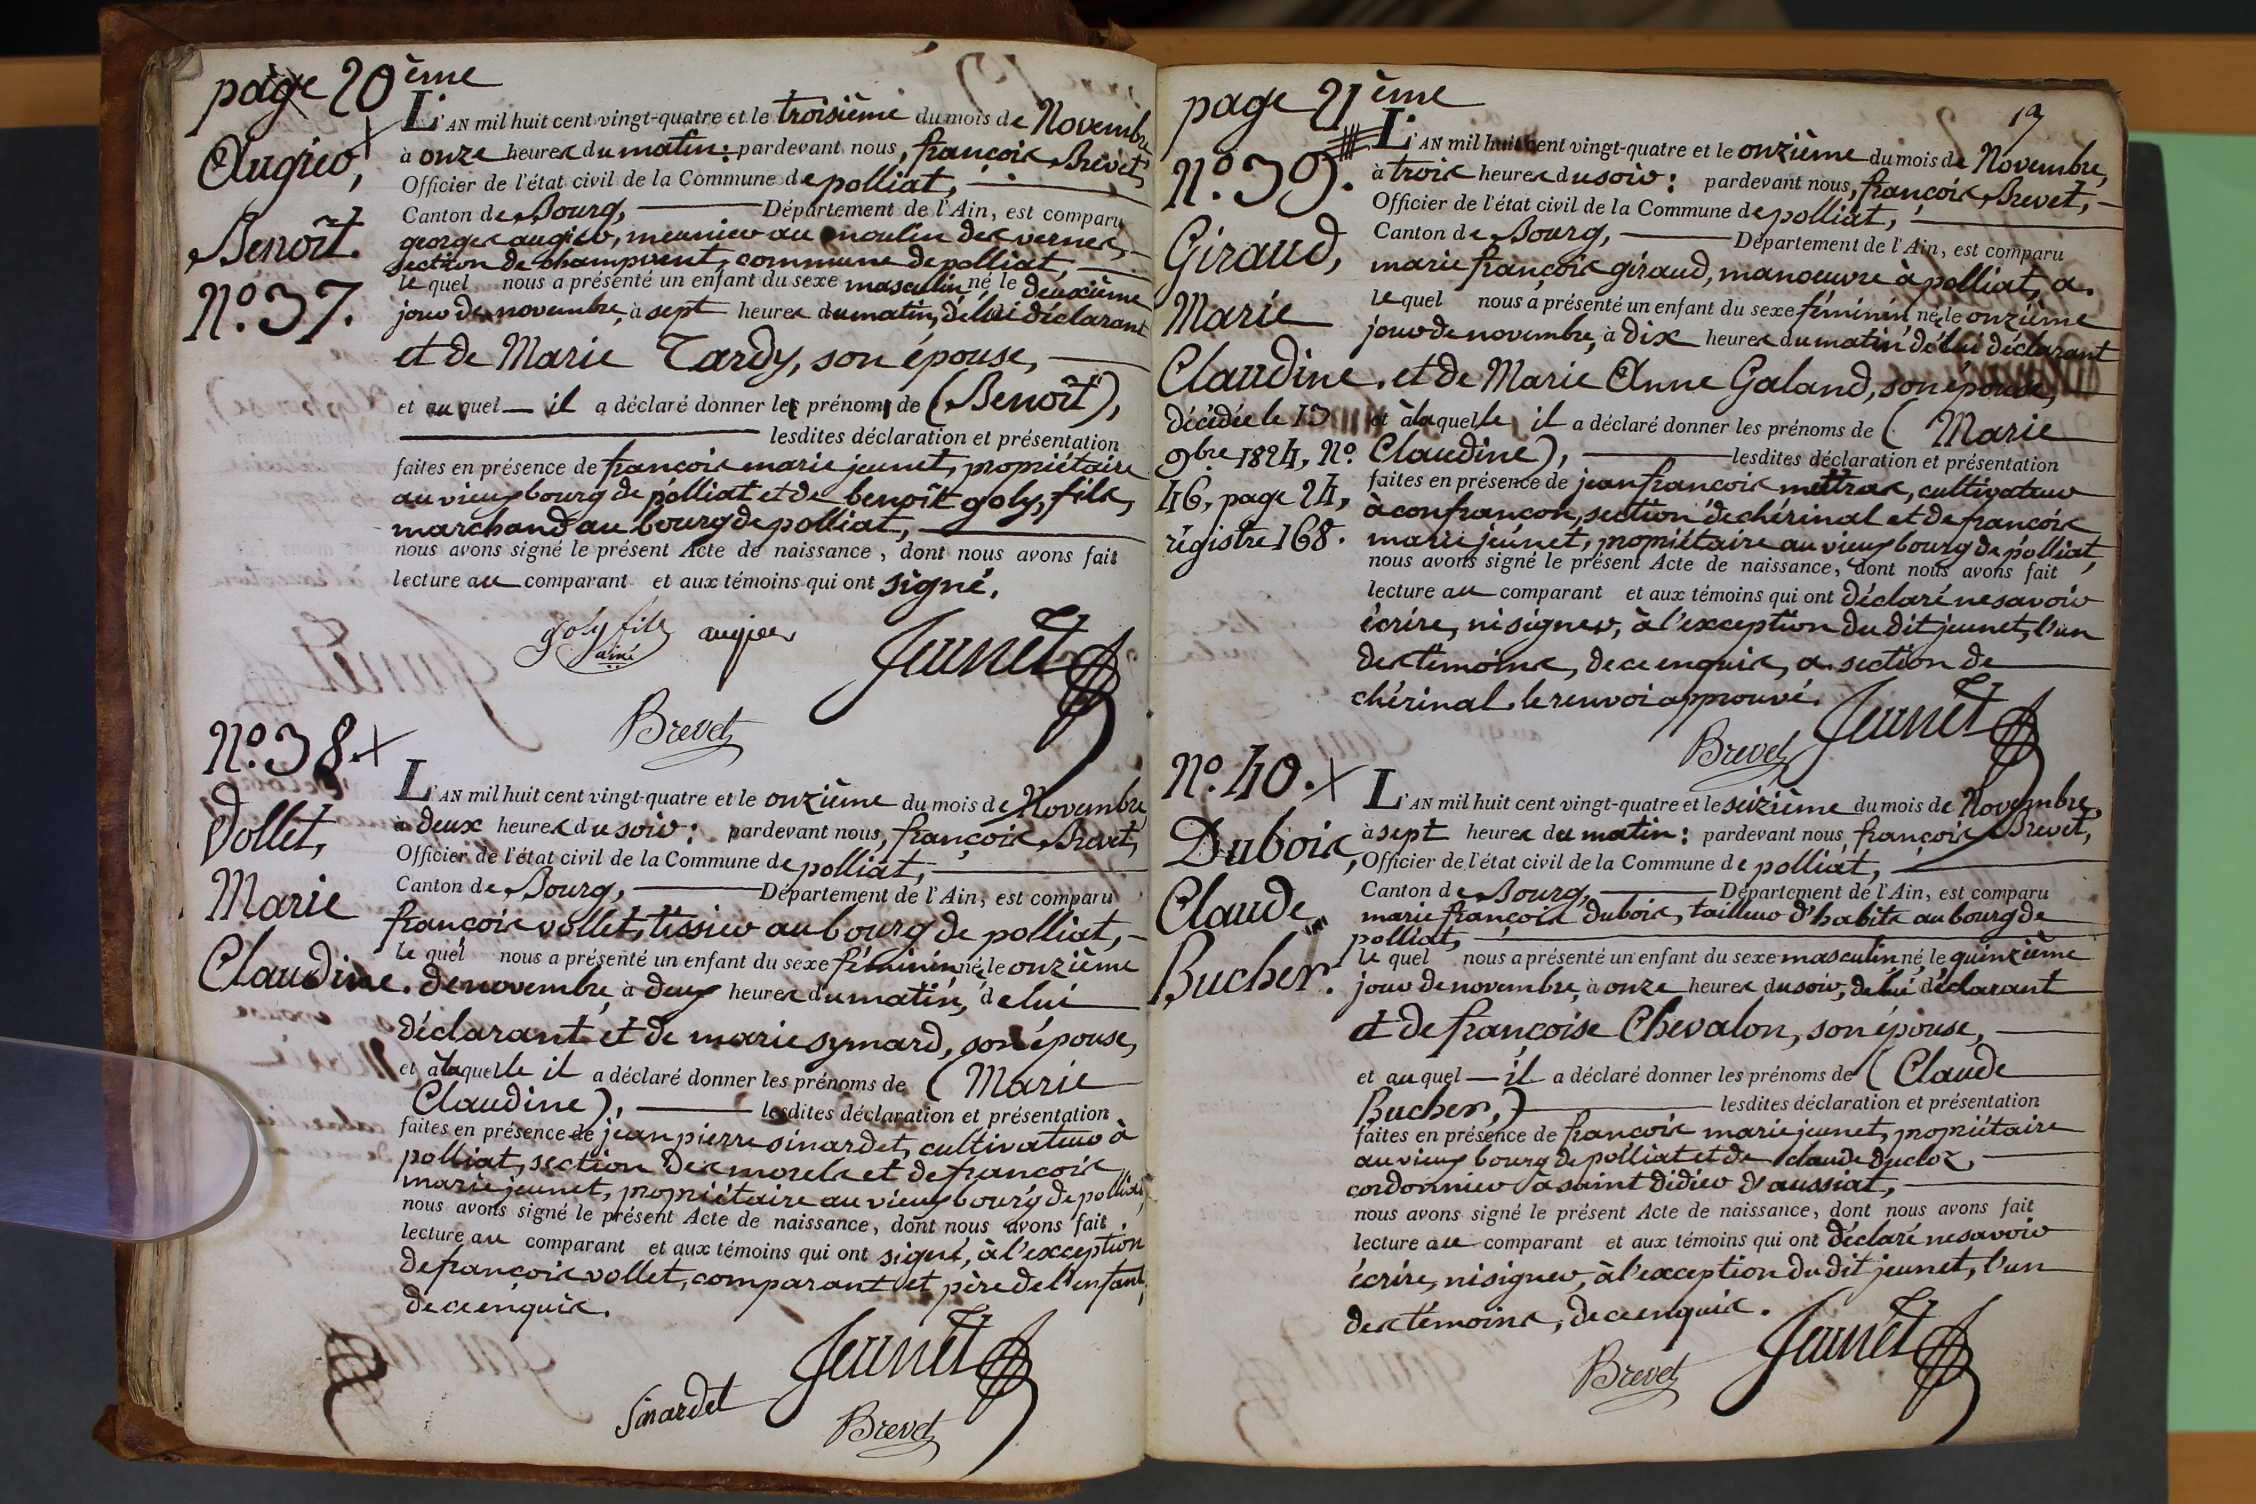 page 20ème
Augier,
Benoît.
N.o 37.
L'AN mil huit cent vingt-quatre et le troisième du mois de Novembre
à onze heures du matin: pardevant nous, françois Brevet,
Officier de l'état civil de la Commune de polliat,
Canton de Bourg, Département de l'Ain, est comparu
georges augier, meunier au moulin des vernes,
section de champvent, commune de polliat,
le quel nous a présenté un enfant du sexe masculin né le deuxième
jour de novembre, à sept heures du matin, de lui déclarant
et de Marie Tardy, son épouse,
et au quel il a déclaré donner les prénoms de (Benoît),
lesdites déclaration et présentation
faites en présence de françois marie jeunet, propriétaire
au vieux bourg de polliat et de benoît goly, fils,
marchand au bourg de polliat,
nous avons signé le présent Acte de naissance, dont nous avons fait
lecture au comparant et aux témoins qui ont signé.
goly fils
ainé
augier
Jeunet
Brevet
N.o 38.
Vollet,
Marie
Claudine.
L'AN mil huit cent vingt-quatre et le onzième du mois de Novembre
à deux heures du soir: pardevant nous, françois Brevet,
Officier de l'état civil de la Commune de polliat,
Canton de Bourg, Département de l'Ain, est comparu
françois vollet, tissier au bourg de polliat,
le quel nous a présenté un enfant du sexe féminin né le onzième
de novembre, à deux heures du matin, de lui
déclarant et de marie symard, son épouse,
et à laquelle il a déclaré donner les prénoms de (Marie
Claudine), lesdites déclaration et présentation
faites en présence de jean pierre sinardet, cultivateur à
polliat, section des morels et de françois
marie jeunet, propriétaire au vieux bourg de polliat,
nous avons signé le présent Acte de naissance, dont nous avons fait
lecture au comparant et aux témoins qui ont signé, à l'exception
de françois vollet, comparant et père de l'enfant,
de ce enquis.
Jeunet
Sinardet
Brevet
page 21ème
19
N.o 39.
Giraud,
Marie
Claudine.
décédée le 13
9bre 1824, N.o
46, page 24,
régistre 168.
L'AN mil huit cent vingt-quatre et le onzième du mois de Novembre,
à trois heures du soir: pardevant nous, françois Brevet,
Officier de l'état civil de la Commune de polliat,
Canton de Bourg, Département de l'Ain, est comparu
marie françois giraud, manoeuvre à polliat, a.
le quel nous a présenté un enfant du sexe féminin né le onzième
jour de novembre, à dix heures du matin de lui déclarant
et de Marie Anne Galand, son épouse,
et à laquelle il a déclaré donner les prénoms de (Marie
Claudine), lesdites déclaration et présentation
faites en présence de jean françois mettras, cultivateur
à confrançon, section de chérinal et de françois
marie jeunet, propriétaire au vieux bourg de polliat,
nous avons signé le présent Acte de naissance, dont nous avons fait
lecture au comparant et aux témoins qui ont déclaré ne savoir
écrire, ni signer, à l'exception du dit jeunet, l'un
des témoins, de ce enquis, a. section de
chérinal le renvoi approuvé.
Jeunet
Brevet
N.o 40.
Dubois,
Claude
Bucher.
L'AN mil huit cent vingt-quatre et le seizième du mois de Novembre,
à sept heures du matin: pardevant nous, françois Brevet,
Officier de l'état civil de la Commune de polliat,
Canton de Bourg, Département de l'Ain, est comparu
marie françois dubois, tailleur d'habits au bourg de
polliat,
le quel nous a présenté un enfant du sexe masculin né le quinzième
jour de novembre, à onze heures du soir, de lui déclarant
et de françoise Chevalon, son épouse,
et au quel il a déclaré donner les prénoms de (Claude
Bucher,) lesdites déclaration et présentation
faites en présence de françois marie jeunet, propriétaire
au vieux bourg de polliat et de claude ducloz,
cordonnier à saint didier d'aussiat,
nous avons signé le présent Acte de naissance, dont nous avons fait
lecture au comparant et aux témoins qui ont déclaré ne savoir
écrire, ni signer, à l'exception du dit jeunet, l'un
des témoins, de ce enquis.
Jeunet
Brevet